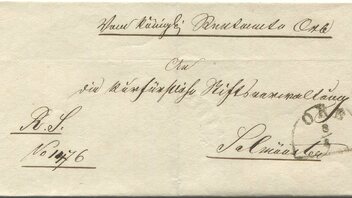 Vom Königl. Rentamte Orb
An
die Kurfürstliche Stiftsverwaltung
R. S.
No 1476
Salmünster
ORB
9
4